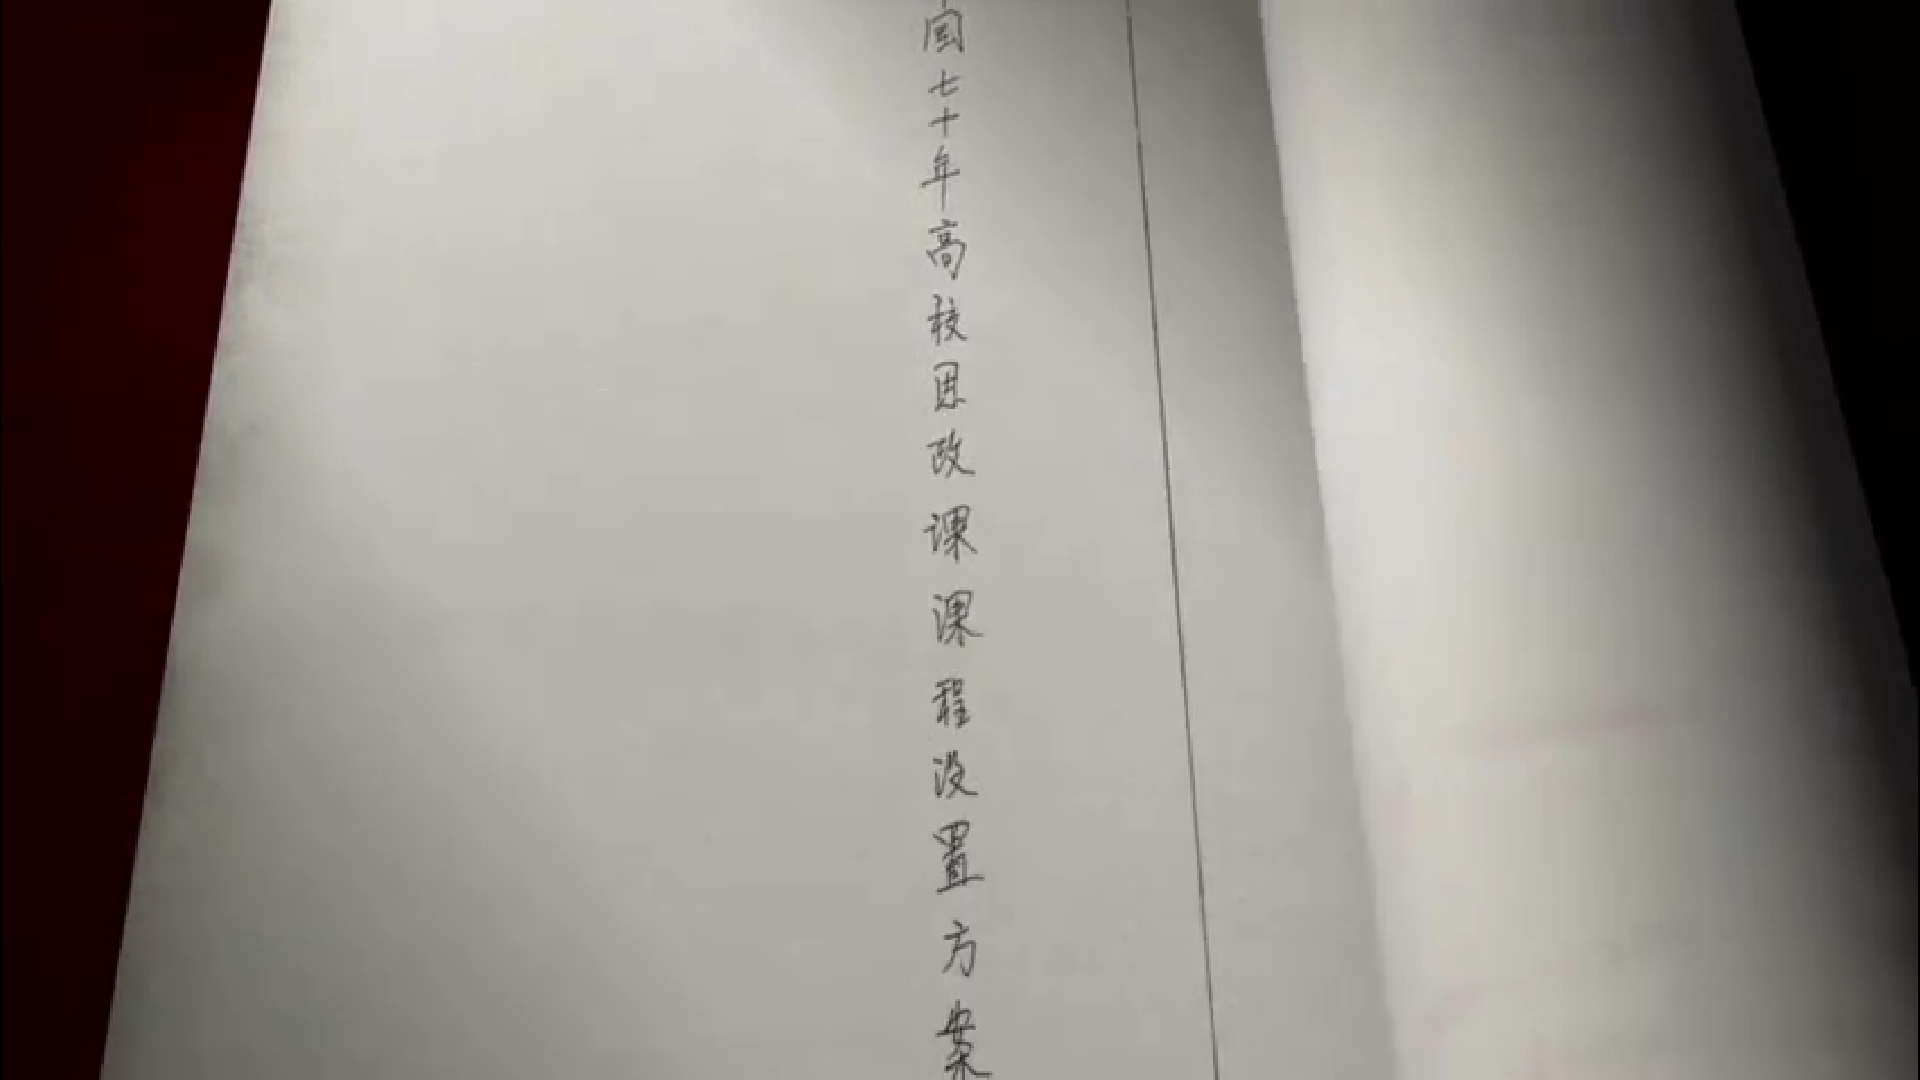 国七十年高校思政课课程设置方案